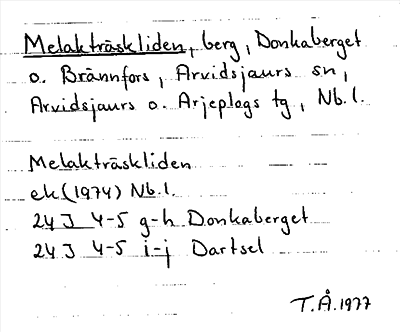 Melakträskliden, berg, Donkaberget
o. Brännfors, Arvidsjaurs sn,
Arvidsjaurs o. Arjeplogs tg, Nb.l.
Melakträskliden
ek (1974) Nb.l.
24J 4-5 g-h Donkaberget
24J 4-5 i-j Dartsel
T.Å. 1977